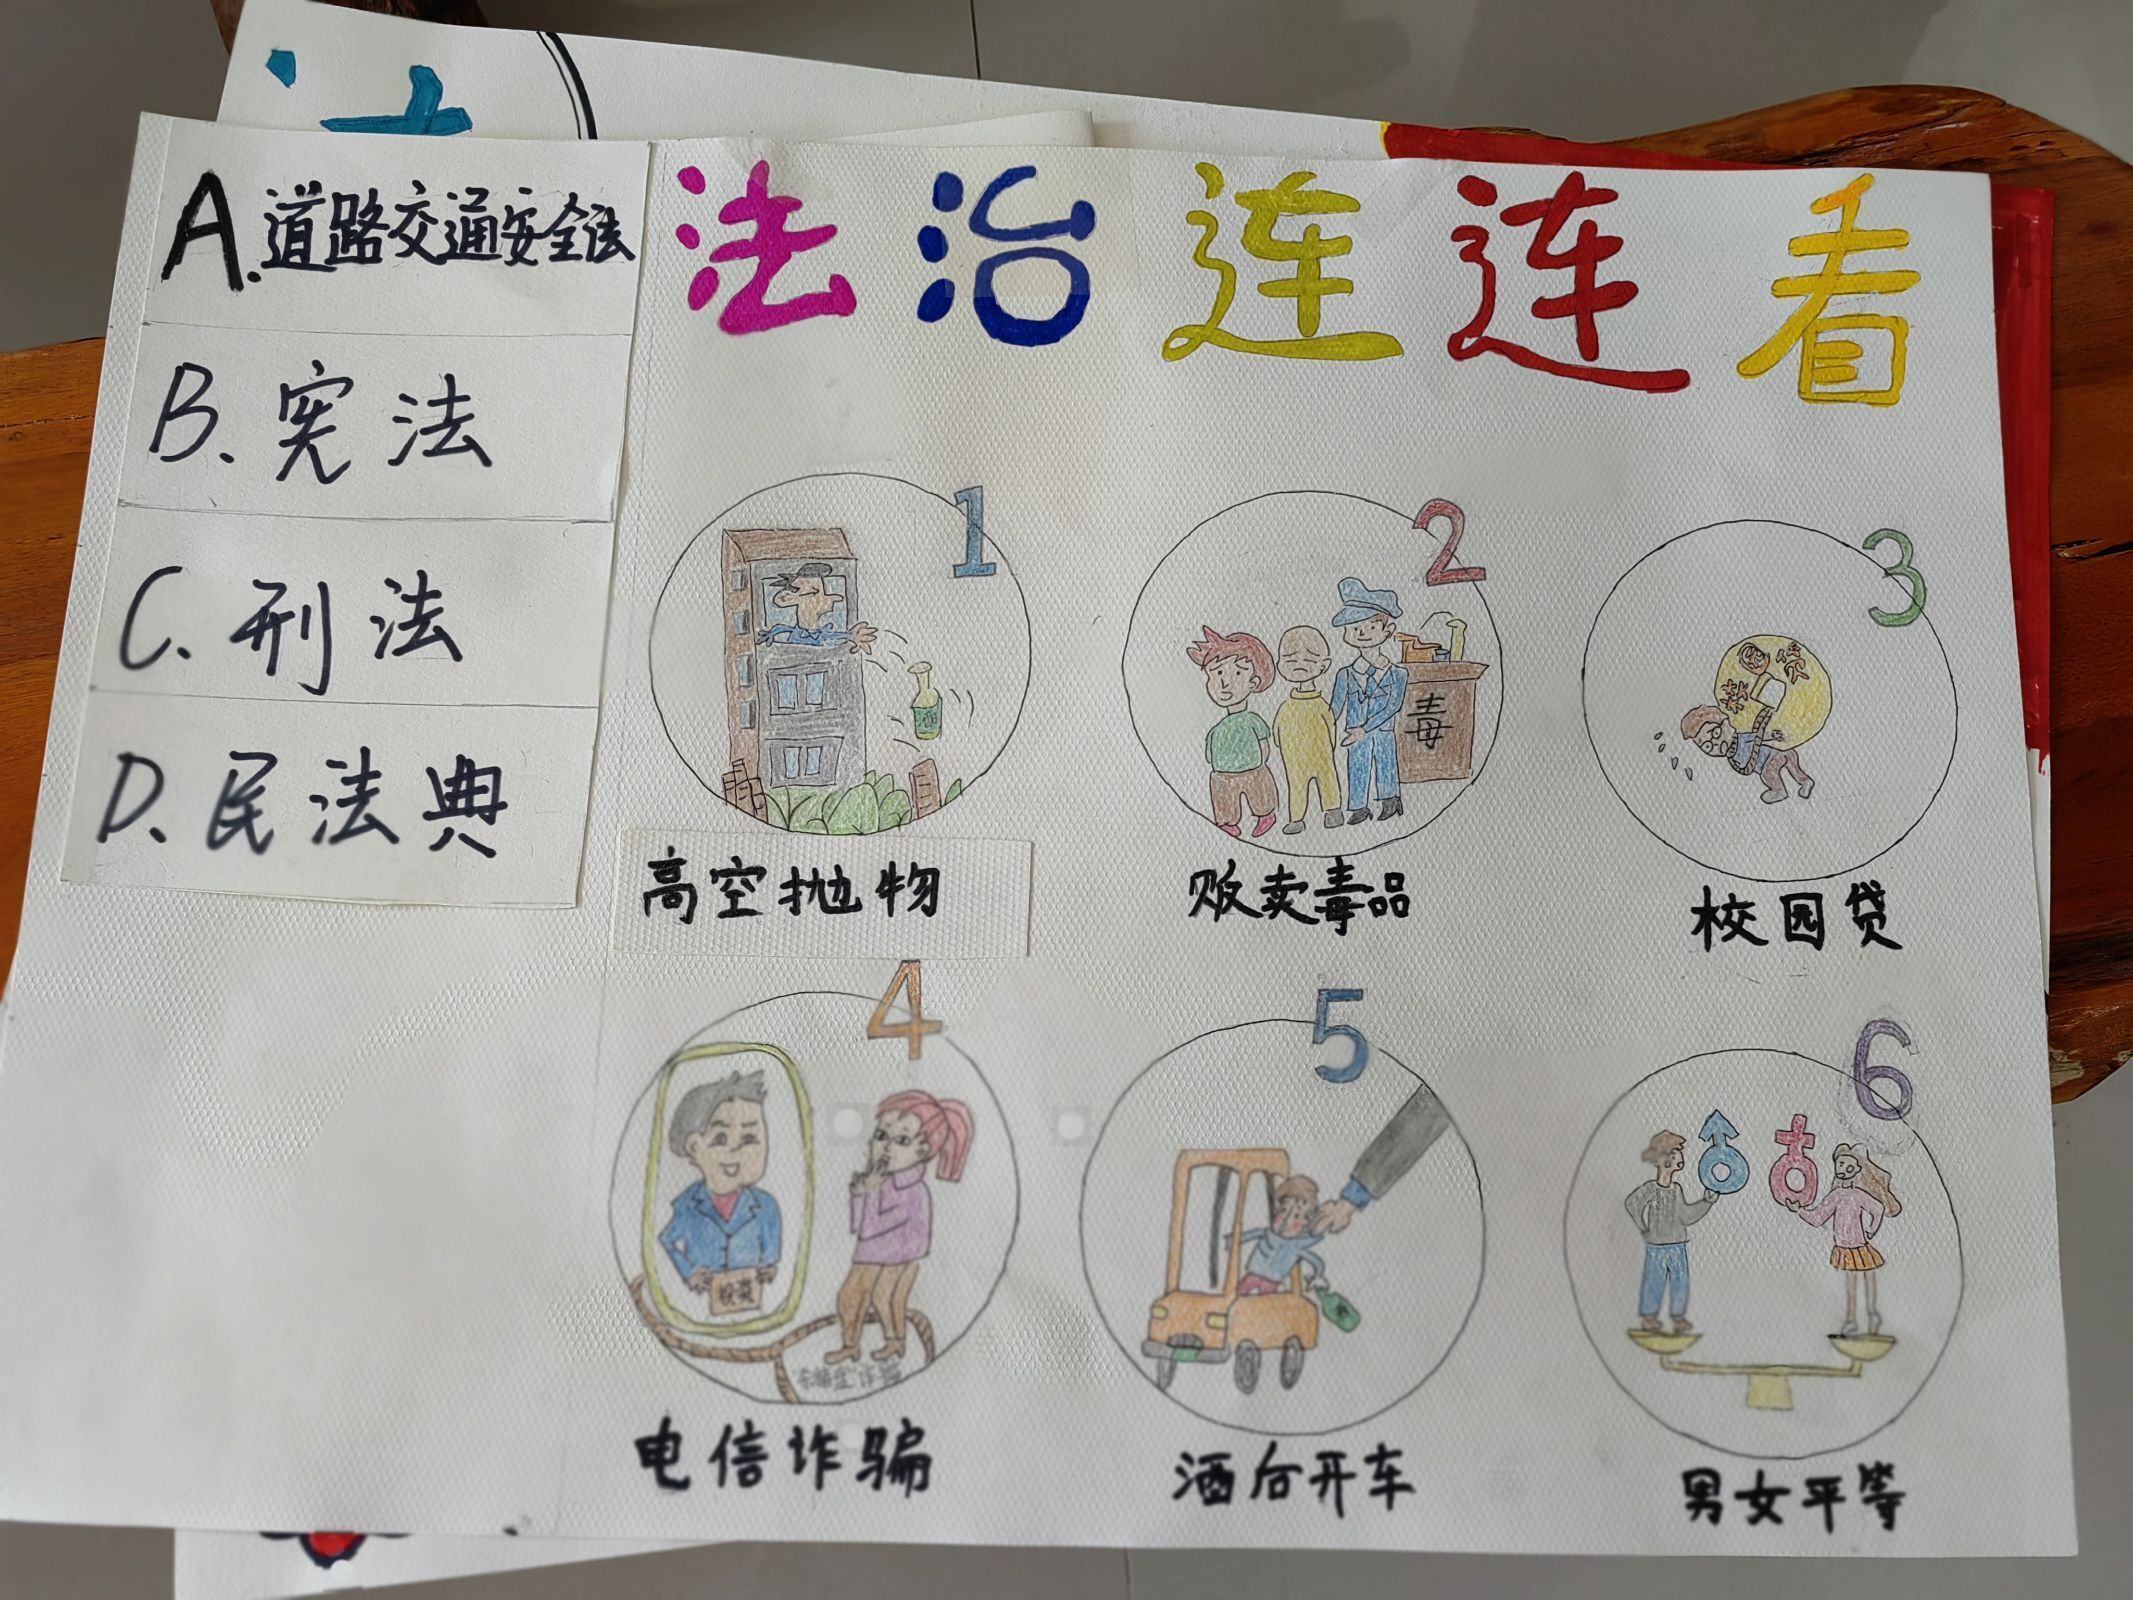 法治连连看
A.道路交通安全法
B.宪法
C.刑法
D.民法典
1
2
3
毒
高空抛物
贩卖毒品
校园贷
4
5
6
电信诈骗
酒后开车
男女平等